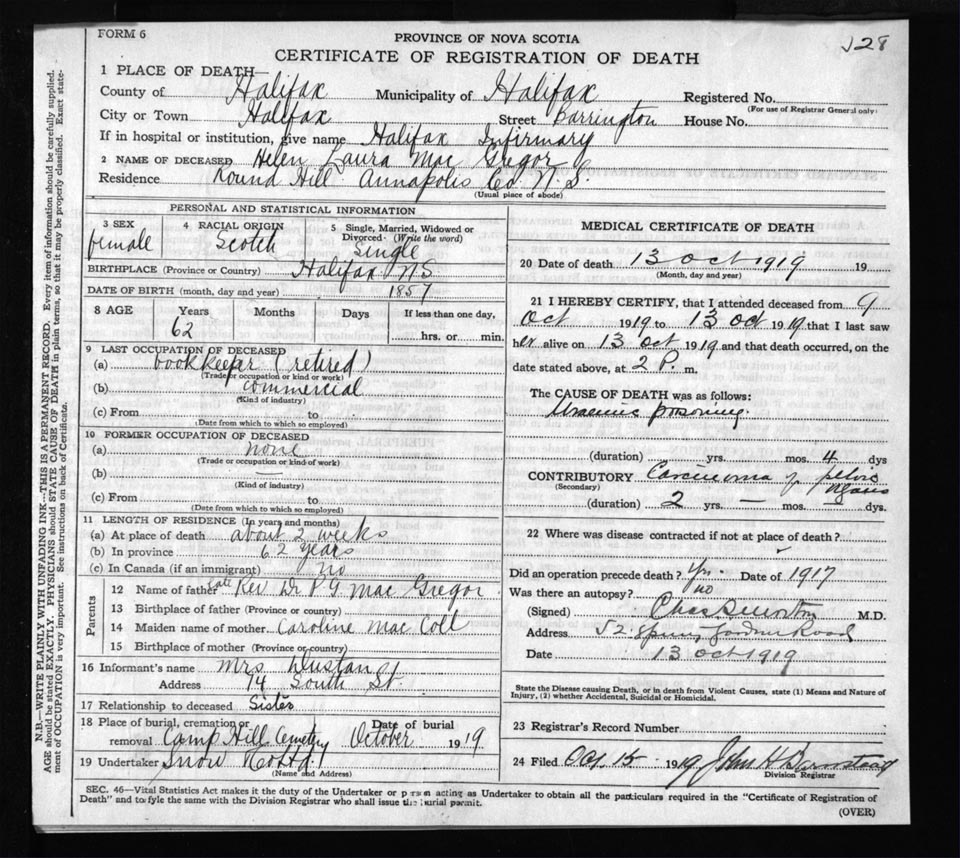 FORM 6
PROVINCE OF NOVA SCOTIA
128
CERTIFICATE OF REGISTRATION OF DEATH
1 PLACE OF DEATH—
County of Halifax Municipality of Halifax Registered No.
(For use of Registrar General only)
City or Town Halifax Street Barrington House No.
If in hospital or institution, give name Halifax Infirmary
2 NAME OF DECEASED Helen Laura Mac Gregor
Residence Round Hill Annapolis Co. N.S.
(Usual place of abode)
PERSONAL AND STATISTICAL INFORMATION
3 SEX female 4 RACIAL ORIGIN Scotch 5 Single, Married, Widowed or Divorced. (Write the word) Single
BIRTHPLACE (Province or Country) Halifax N.S.
DATE OF BIRTH (month, day and year) 1857
8 AGE Years Months Days If less than one day,
62 hrs. or min.
9 LAST OCCUPATION OF DECEASED
(a) bookkeeper (retired)
(Trade or occupation or kind of work)
(b) commercial
(Kind of industry)
(c) From to
(Date from which to which so employed)
10 FORMER OCCUPATION OF DECEASED
(a) none
(Trade or occupation or kind of work)
(b) —
(Kind of industry)
(c) From to
(Date from which to which so employed)
11 LENGTH OF RESIDENCE (In years and months)
(a) At place of death about 2 weeks
(b) In province 62 years
(c) In Canada (if an immigrant) no
Parents
12 Name of father late Rev Dr P G Mac Gregor
13 Birthplace of father (Province or country)
14 Maiden name of mother Caroline Mac Coll
15 Birthplace of mother (Province or country)
16 Informant's name Mrs Dustan
Address 74 South St.
17 Relationship to deceased Sister
18 Place of burial, cremation or removal Camp Hill Cemetery Date of burial October 1919
19 Undertaker Snow & Co Ltd.
(Name and Address)
MEDICAL CERTIFICATE OF DEATH
20 Date of death 13 Oct 1919 19
(Month, day and year)
21 I HEREBY CERTIFY, that I attended deceased from 9
Oct 1919 to 13 Oct 1919 that I last saw
her alive on 13 Oct 1919 and that death occurred, on the
date stated above, at 2 P. m.
The CAUSE OF DEATH was as follows:
Uraemic poisoning
(duration) yrs. mos. 4 dys
CONTRIBUTORY Carcinoma of pelvic organs
(Secondary)
(duration) 2 yrs. — mos. — dys.
22 Where was disease contracted if not at place of death?
Did an operation precede death? Yes. Date of 1917
Was there an autopsy? no
(Signed) M.D.
Address 52 Spring Garden Road
Date 13 Oct 1919
State the Disease causing Death, or in death from Violent Causes, state (1) Means and Nature of
Injury, (2) whether Accidental, Suicidal or Homicidal.
23 Registrar's Record Number
24 Filed Oct. 15 1919
Division Registrar
SEC. 46—Vital Statistics Act makes it the duty of the Undertaker or person acting as Undertaker to obtain all the particulars required in the "Certificate of Registration of
Death" and to fyle the same with the Division Registrar who shall issue the burial permit.
(OVER)
N.B.—WRITE PLAINLY WITH UNFADING INK—THIS IS A PERMANENT RECORD. Every item of information should be carefully supplied.
AGE should be stated EXACTLY. PHYSICIANS should STATE CAUSE OF DEATH in plain terms, so that it may be properly classified. Exact statement of OCCUPATION is very important. See instructions on back of Certificate.